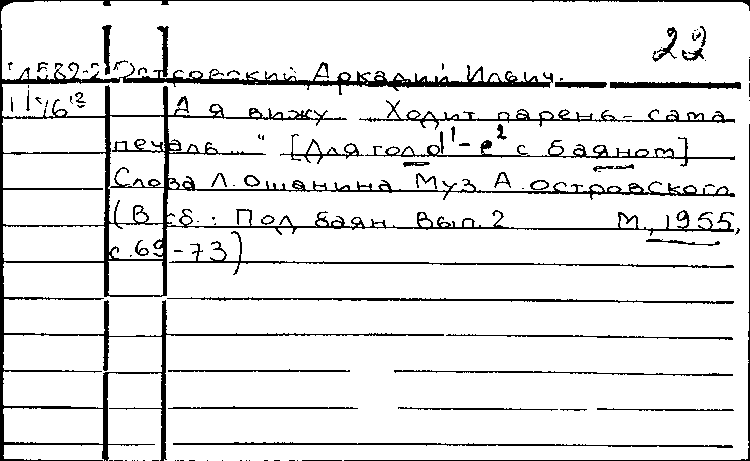 22
Островский, Аркадий Ильич.
А я вижу "Ходит парень – сама
печаль..." [Для гол. d¹ – e² с баяном]
Слова Л. Ошанина Муз. А. Островского
(В сб.: Под баян. Вып. 2 М., 1955,
с. 69-73)